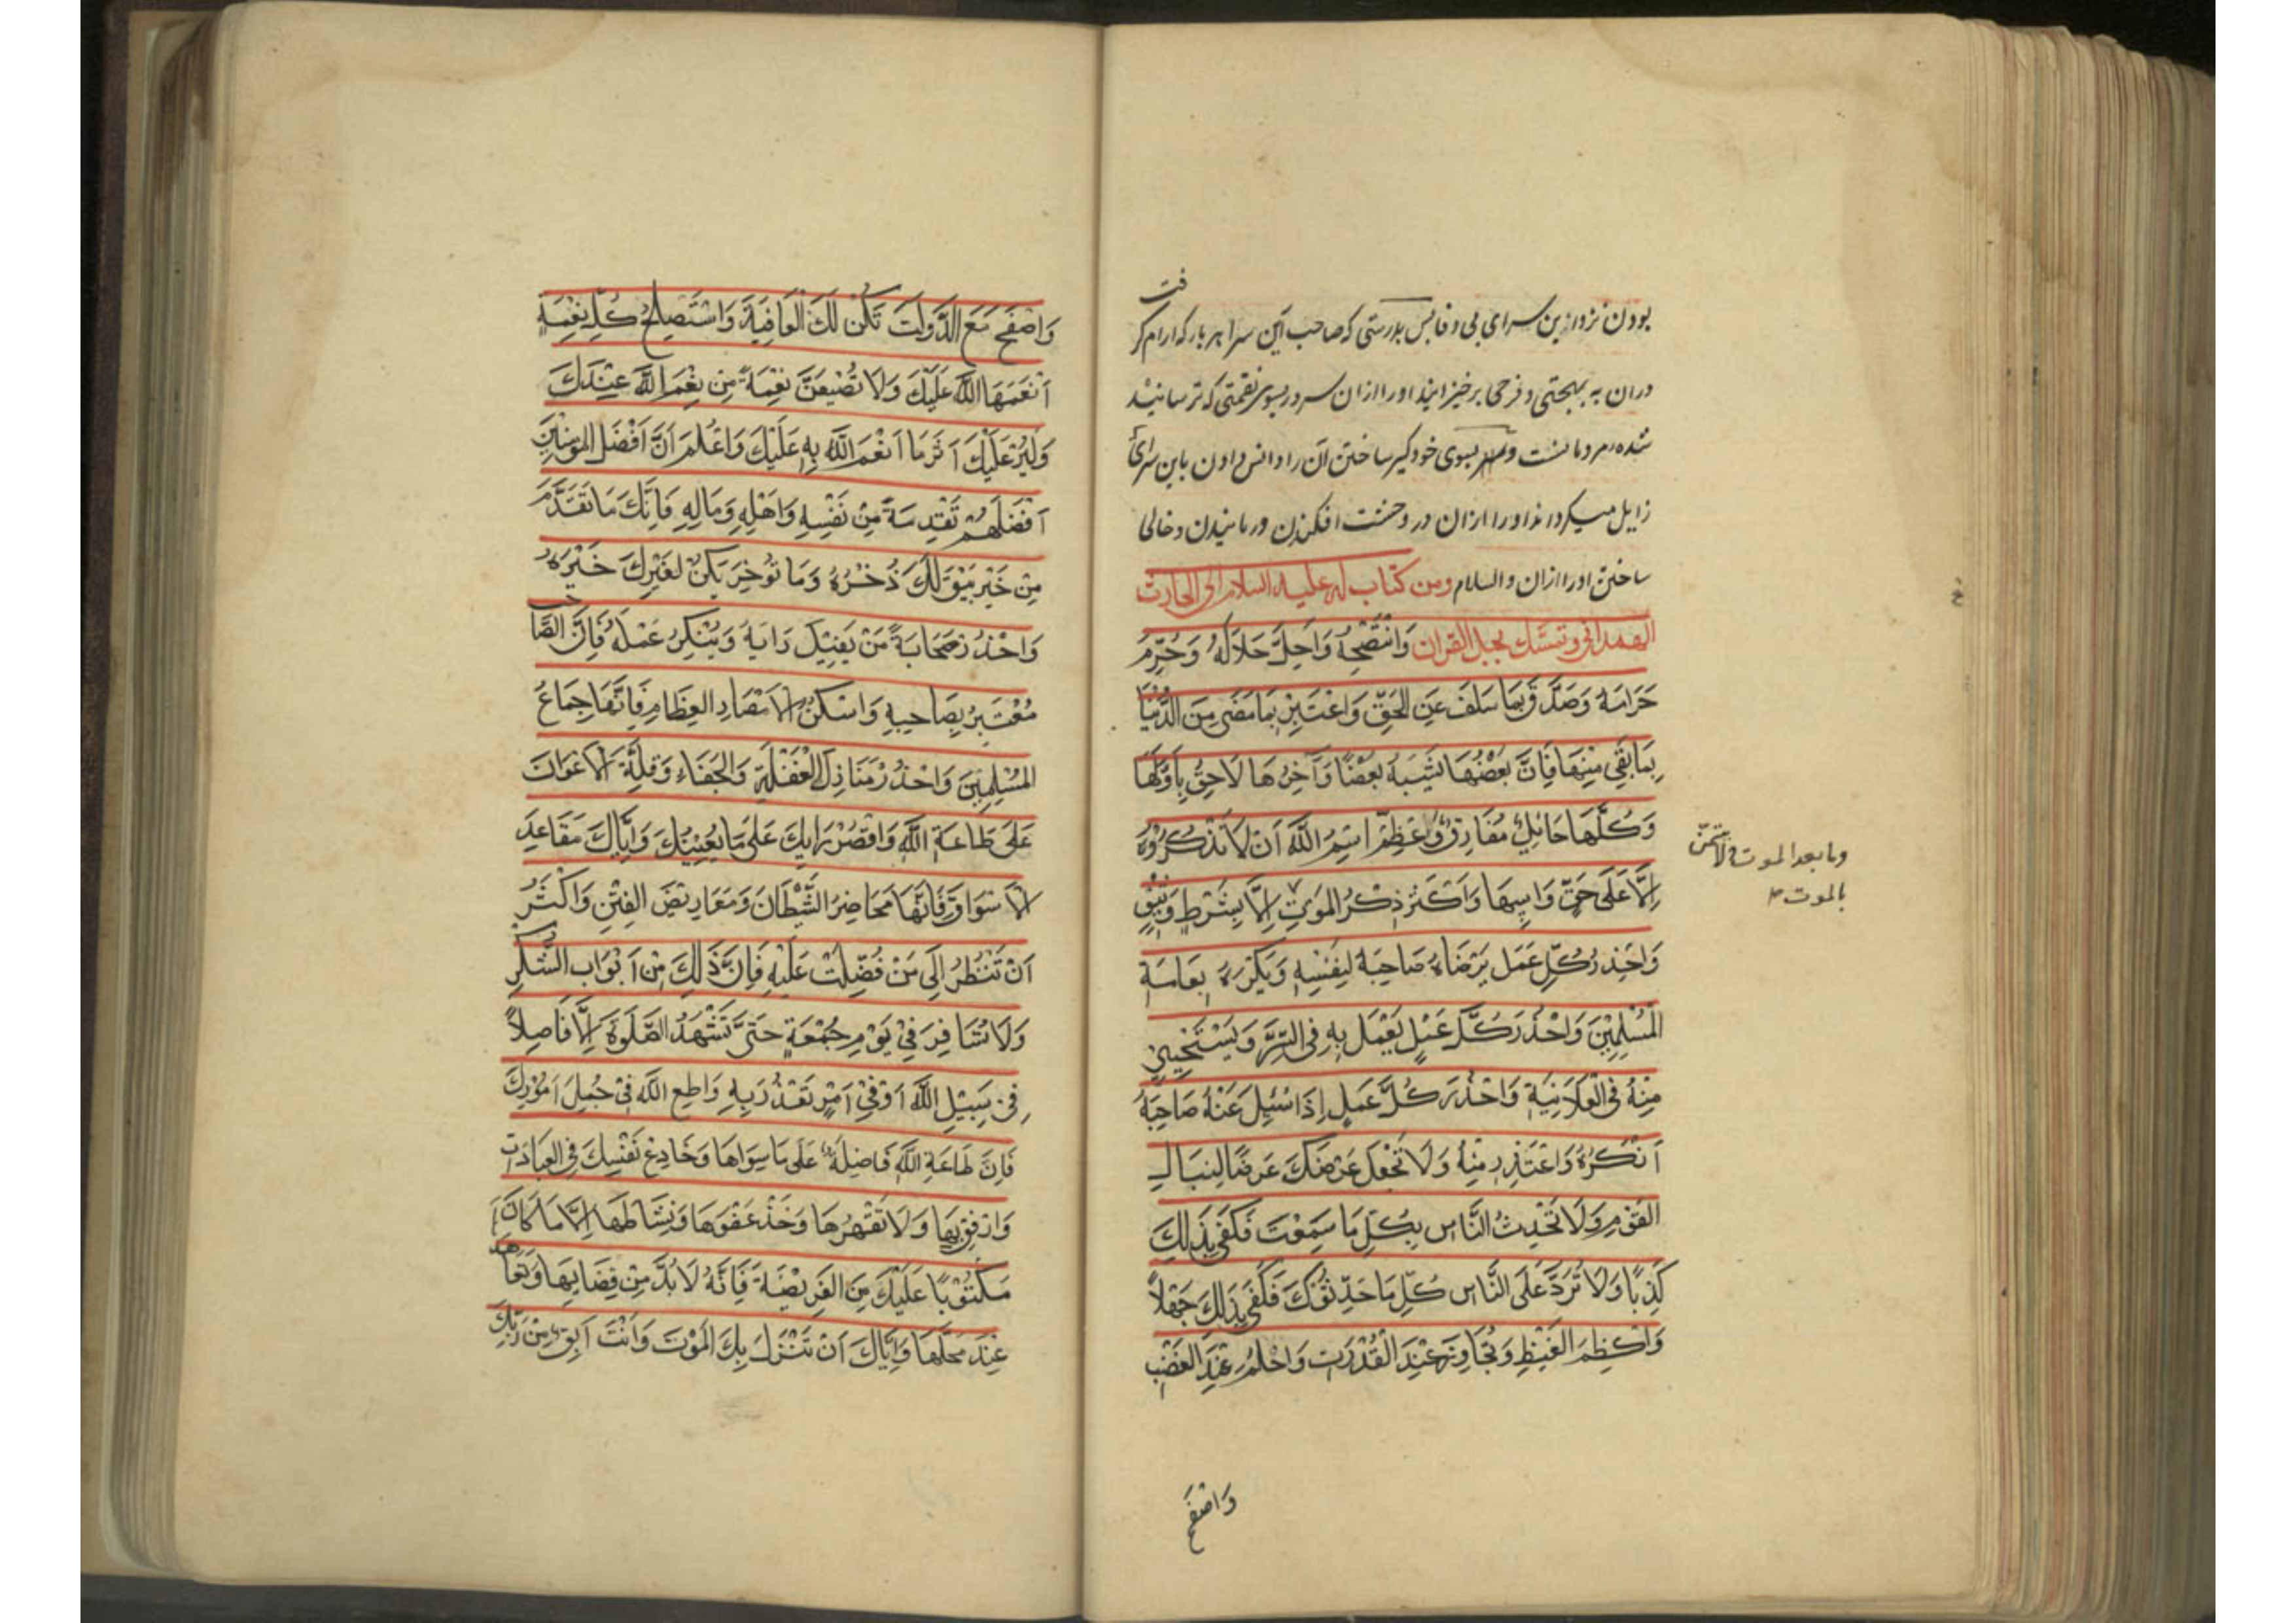 بودن نزد ازین سرای بی وفا پس بدرستی که صاحب این سرا هر بار که ارام کر
فت
دران به بهجتی و فرحی برخیزانید اورا ازان سرور بسوی نقمتی که ترسانیند
شده مردمانست و بسوی خودگیر ساختن آن را و انس دادن باین سرای
زایل میکرداند اورا ازان در وحشت افکندن و رمانیدن و خالی
ساختن اورا ازان والسلام ومن کتاب له علیه السلام الی الحارث
الهمدانی وتمسك بحبل القران وَانْتَصِحْهُ وَاَحِلَّ حَلَالَهُ وَحَرِّمْ
حَرَامَهُ وَصَدِّقْ بِمَا سَلَفَ عَنِ الحَقِّ وَاعْتَبِرْ بِمَا مَضَى مِنَ الدُّنْيَا
بِمَا بَقِيَ مِنْهَا فَاِنَّ بَعْضُهَا يُشْبِهُ بَعْضًا وَآخِرُهَا لَاحِقٌ بِاَوَّلِهَا
وَكُلُّهَا حَائِلٌ مُفَارِقٌ وَعَظِّمْ اسْمِ اللَّهِ اَنْ لَا تَذْكُرُوْهُ
اِلَّا عَلَى حَقٍّ وَاكْثَرْ ذِكْرُ المَوْتِ اِلَّا بِشَرْطٍ وَثِيْقٍ
وما بعد الموت ولا تتمنّ
بالموت
وَاحْذِرْ كُلِّ عَمَل يَرْضَاهُ صَاحِبَهُ لِنَفْسِهِ وَيَكْرَهُ بعَامَةِ
الْمُسْلِمِيْنَ وَاحْذَرَ كُلَّ عَمَلٍ يَعْمَل بِهِ فِي السِّرِّ وَيَسْتَحْيِيْ
مِنْهُ فِي الْعَلَانِيَةِ وَاحْذَرَ كُلَّ عَمَلٍ اِذَا سُئِلَ عَنْهُ صَاحِبَهُ
اَنْكَرَهُ وَاعْتَذِرِ مِنْهُ وَلَا تَجْعَلْ عَرْضَكَ عَرَضًا لِنِبَالِ
القَوْمِ وَلَا تُحَدِثُ النَّاسِ بِكُلِّ مَا سَمِعْتَ فَكَفَى بِذَالِكَ
كَذِبًا وَلَا تُرَدَّ عَلَى النَّاسِ كُلِّ مَا حَدِّثُوْكَ فَكَفَى بِذَلِكَ جَهْلاً
وَاكْظِمَ الغَيْظِ وَتَجَاوَزَ عِنْدَ الْقُدْرَتِ وَاحْلُمْ عِنْدَ الغَضَبِ
وَاصْفَحْ
وَاصْفَحْ مَعَ الدَّوْلَتِ تَكُنْ لَكَ الْعَافِيَةَ وَاسْتَصْلِحْ كُلِّ نِعْمَةٍ
اَنْعَمَهَا اللَّهَ عَلَيْكَ وَلَا تُضَيِّعَنَّ نِعْمَةً مِنْ نِعَمَ اللَّهِ عِنْدَكَ
وَلْيُرَ عَلَيْكَ اَثَرَ مَا اَنْعَمَ اللَّهُ بِهِ عَلَيْكَ وَاعْلَمَ اَنَّ اَفْضَلَ المؤمِنِيْنَ
اَفْضَلَهُمْ تَقْدِمَةً مِنْ نَفْسِهِ وَاَهْلِهِ وَمَالِهِ فَاِنَّكَ مَا تَقَدَّمْ
مِنْ خَيْرٍ يَبْقَ لَكَ ذُخْرُهُ وَمَا تُوَخِّرْ يَكُنْ لِغَيْرِكَ خَيْرَهُ
وَاحْذَرْ صَحَابَةَ مَنْ يَفِيْل رَايَهُ وَيُنْكِرُ عَمَلَهُ فَاِنَّ الصَّاحب
مُعْتَبَرٌ بِصَاحِبِهِ وَاسْكُنْ الْاَمْصَارِ العِظَامِ فَاِنَّهَا جِمَاعُ
المُسْلِمِيْنَ وَاحْذَرْ مَنَازِلَ الْغَفْلَةِ وَالجَفَاءِ وَقِلَّةَ الْاَعْوَانَ
عَلَى طَاعَةِ اللَّهِ وَاقْصُرْ رَايَكَ عَلَى مَا يُعْنِيْكَ وَاِيَّاكَ مَقَاعِدَ
الْاَسْوَاقِ فَاِنَّهَا مَحَاضِرُ الشَّيْطَانَ وَمَعَارِيْضَ الفِتَنِ وَاكْثَرُ
اَنْ تَنْظُرُ اِلَى مَنْ فُضِّلْتَ عَلَيْهِ فَاِنَّ ذَلِكَ مِنْ اَبْوَاب الشُّكْرِ
وَلَا تُسَافِرَ فِيْ يَوْمِ جُمْعَةٍ حَتَّى تَشْهَدُ الصَّلَوةَ اِلَّا فَاصِلاً
فِيْ سَبِيْلِ اللَّهِ اَوْ فِيْ اَمْرٍ تُعْذَرُ بِهِ وَاطِعِ اللَّهَ فِيْ جُمَلِ اُمُوْرِكَ
فَاِنَّ طَاعَةِ اللَّهِ فَاضِلَةٌ عَلَى مَا سِوَاهَا وَخَادِعْ نَفْسِكَ فِي العِبَادَتِ
وَارْفِقْ بِهَا وَلَا تَقْهَرُهَا وَخُذْ عَفْوَهَا وَنِشَاطَهَا اِلَّا مَا كَانَ
مَكْتُوْبًا عَلَيْكَ مِنَ الفَرِيْضَةِ فَاِنَّهُ لَا بُدَّ مِنْ قَضَائِهَا وَتَعَاهد
عِنْدَ مَحَلِّهَا وَاِيَّاكَ اَنْ تَنْزِلَ بِكَ الْمَوْتَ وَاَنْتَ اَبِقٌ مِنْ رَبِّكَ